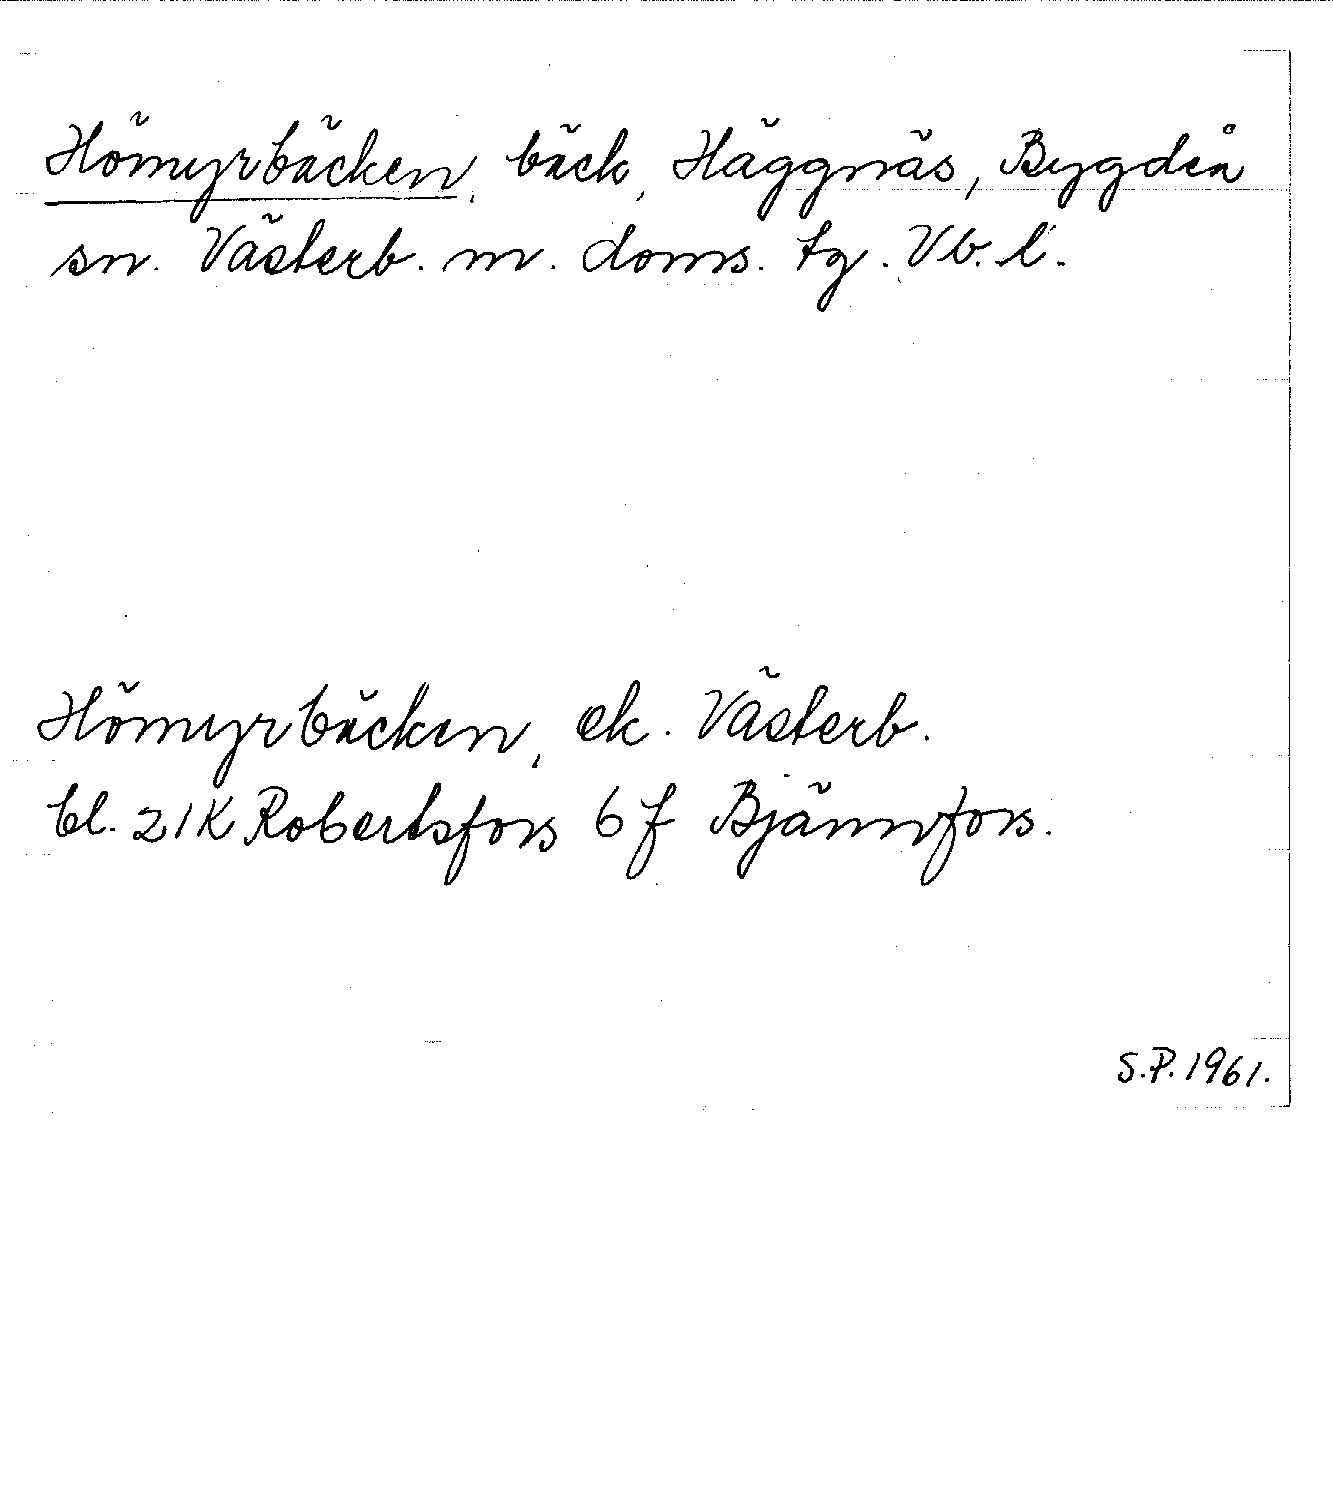 Hömyrbäcken, bäck, Häggnäs, Bygdeå
sn. Västerb. m. doms. tg. Vb. l.
Hömyrbäcken, ek. Västerb.
bl. 21K Robertsfors 6 f Bjännfors.
S.P. 1961.